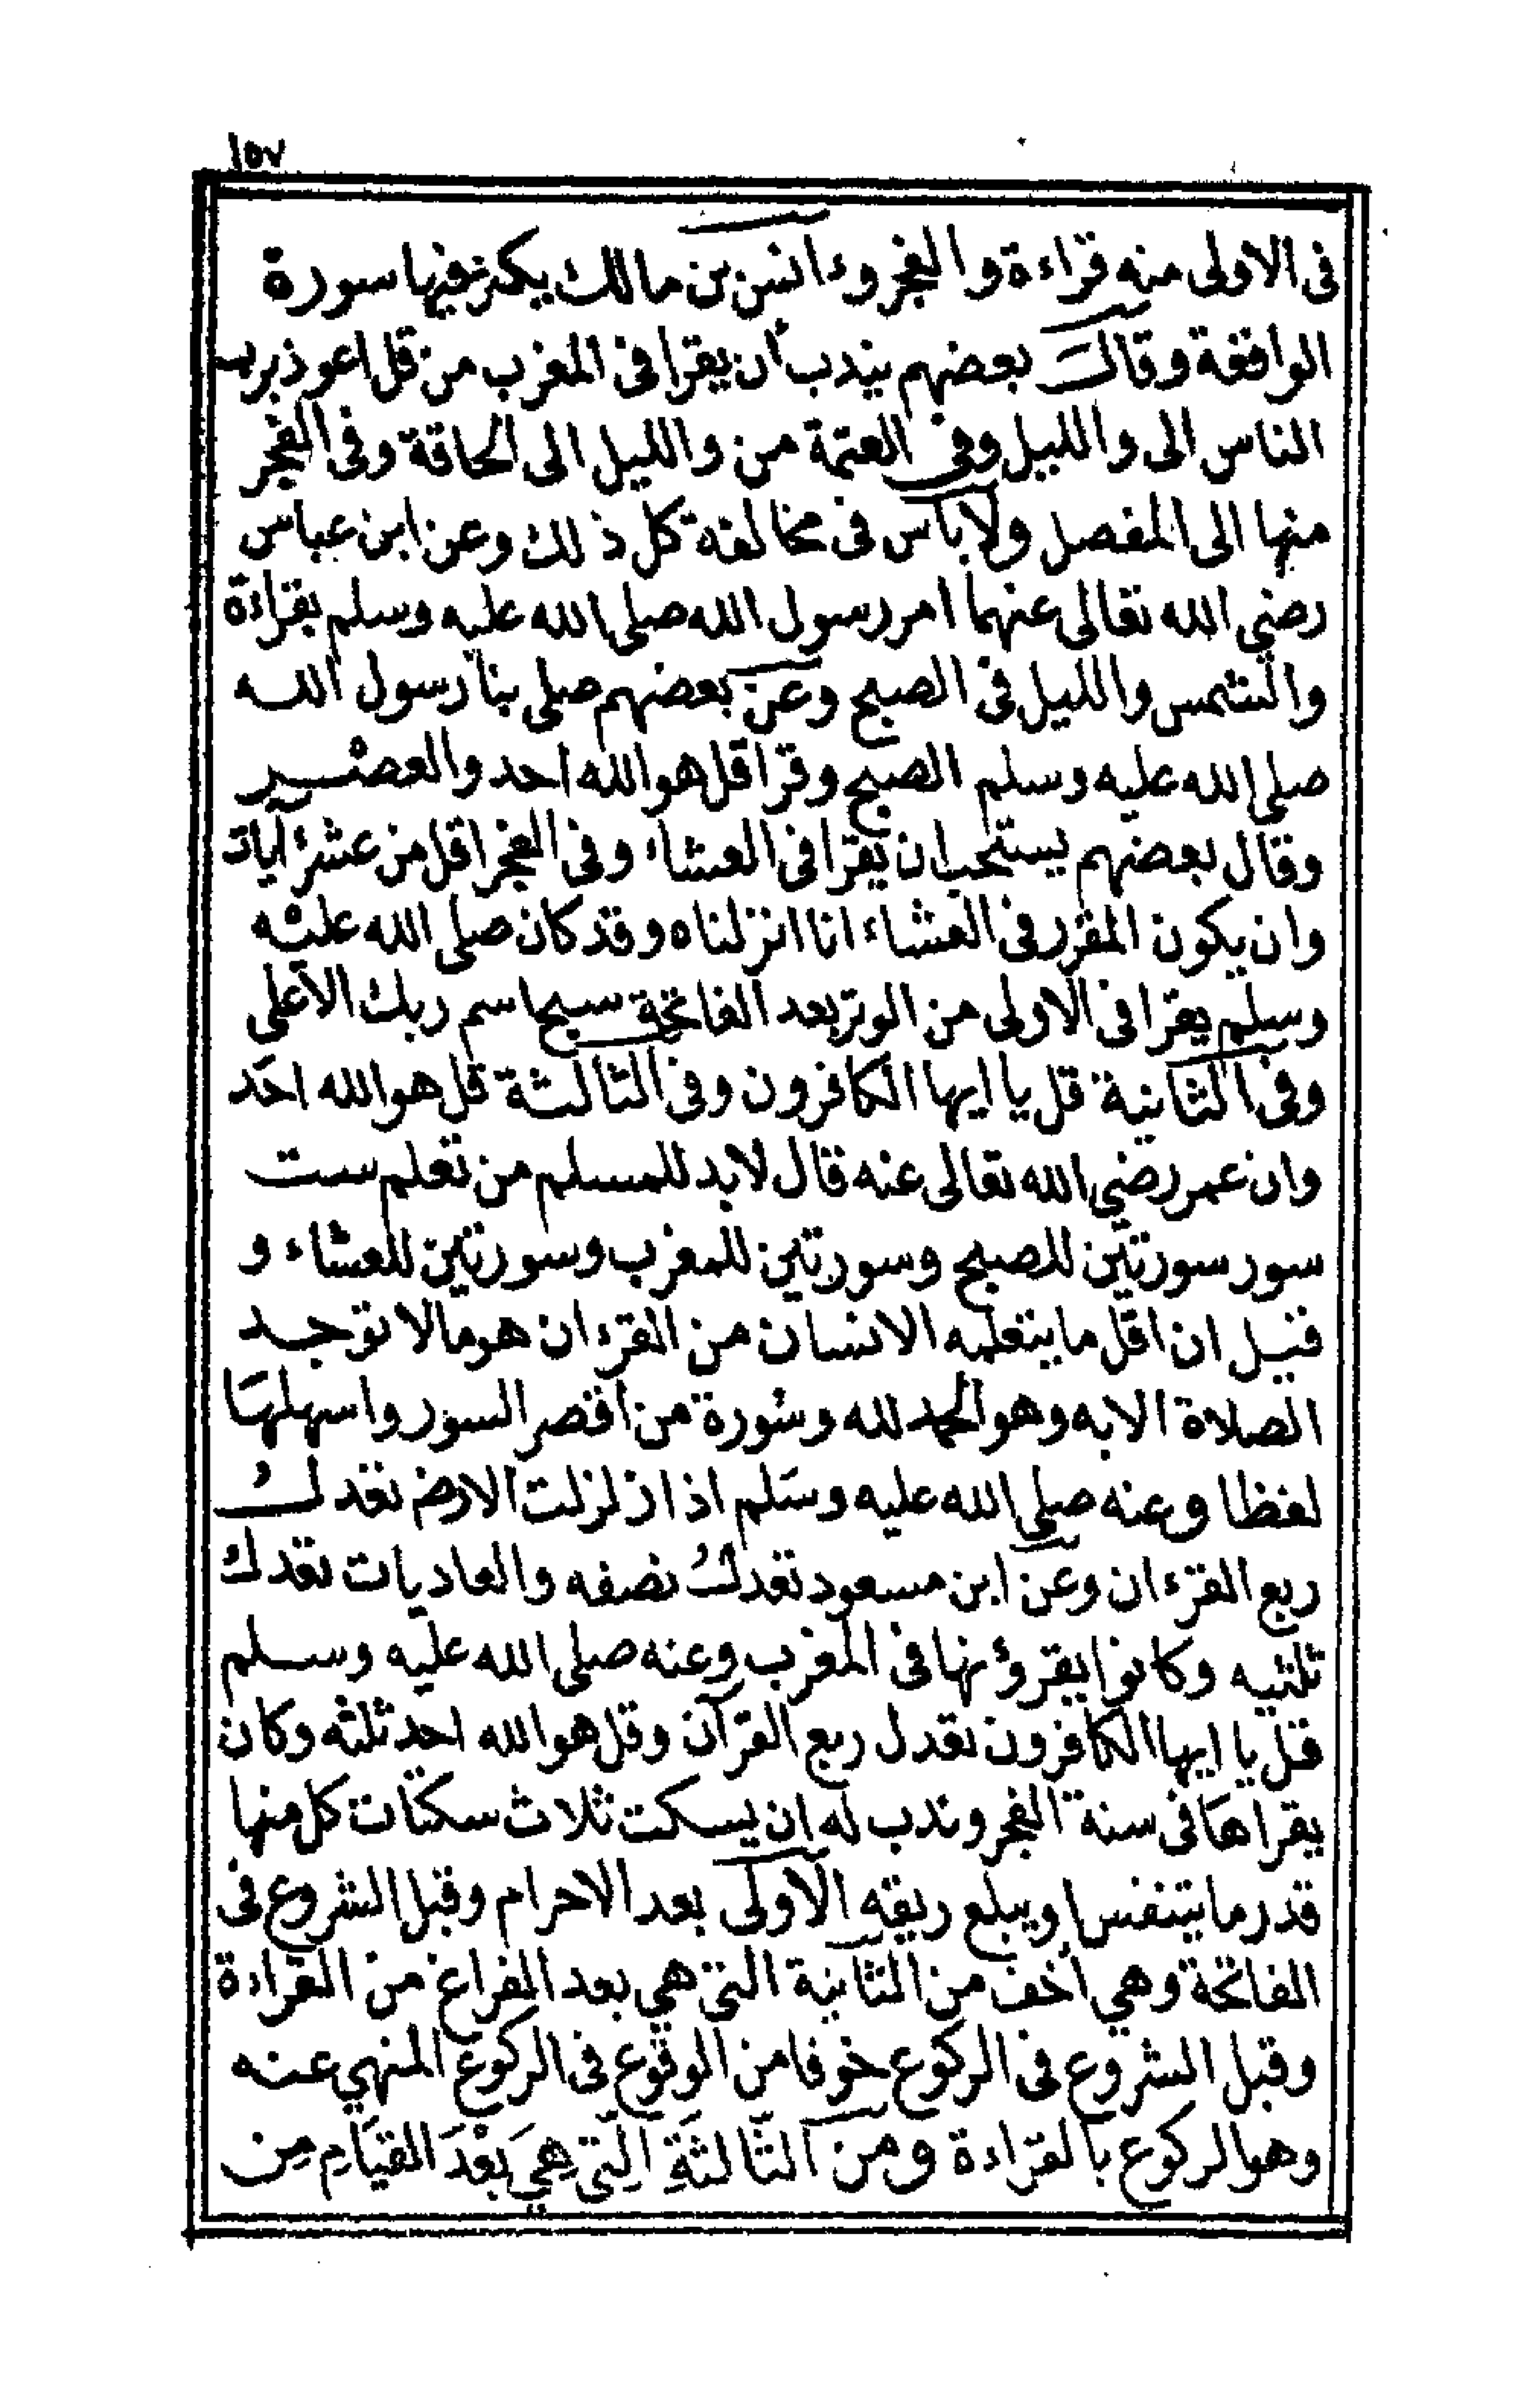 ١٥٧
فى الاولى منه قراءة والفجر وءانس بن مالك يكثر فيها سورة
الواقعة وقال بعضهم يندب أن يقرا فى المغرب من قل اعوذ برب
الناس الى والليل وفى العتمة من والليل الى الحاقة وفى الفجر
منها الى المفصل ولا باس فى مخالفة كل ذلك وعن ابن عباس
رضي الله تعالى عنهما امر رسول الله صلى الله عليه وسلم بقراءة
والشمس والليل فى الصبح وعن بعضهم صلى بنا رسول الله
صلى الله عليه وسلم الصبح وقرا قل هو الله احد والعصر
وقال بعضهم يستحب ان يقرا فى العشاء وفى الفجر اقل من عشر آيات
وان يكون المقرر فى العشاء انا انزلناه وقد كان صلى الله عليه
وسلم يقرا فى الاولى من الوتر بعد الفاتحة سبح اسم ربك الاعلى
وفى الثانية قل يا ايها الكافرون وفى الثالثة قل هو الله احد
وان عمر رضي الله تعالى عنه قال لابد للمسلم من تعلم ست
سور سورتين للصبح وسورتين للمغرب وسورتين للعشاء و
قيل ان اقل ما يتعلمه الانسان من القرءان هو مالا توجد
الصلاة الا به وهو الحمد لله وسورة من اقصر السور واسهلها
لفظا وعنه صلى الله عليه وسلم اذا زلزلت الارض تعدل
ربع القرءان وعن ابن مسعود تعدل نصفه والعاديات تعدل
ثلثيه وكانوا يقرؤنها فى المغرب وعنه صلى الله عليه وسلم
قل يا ايها الكافرون تعدل ربع القرآن وقل هو الله احد ثلثه وكان
يقراها فى سنة الفجر وندب له ان يسكت ثلاث سكتات كل منها
قدر ما يتنفس او يبلع ريقه الاولى بعد الاحرام وقبل الشروع فى
الفاتحة وهي أخف من الثانية التى هي بعد الفراغ من القراءة
وقبل الشروع فى الركوع خوفا من الوقوع فى الركوع المنهي عنه
وهو الركوع بالقراءة ومن الثالثة التى هي بعد القيام من